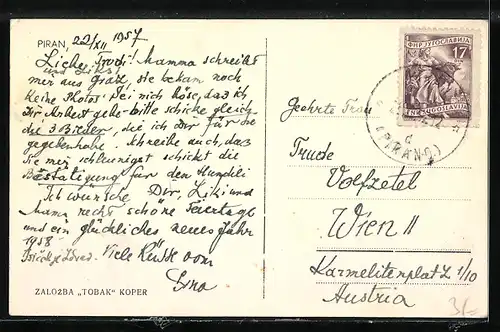 PIRAN, 22/XII 1957
Liebe Trudi! Mamma schreibt
und Likis
mir aus Graz, sie bekam noch
keine Photos. Sei mir böse, daß ich
Dir Arbeit gebe - bitte schicke gleich
die 3 Bilder, die ich Dir für sie
gegeben habe. Schreibe auch, daß
Sie mir schleunigst schickt die
Bestätigung für den Hundeli
Ich wünsche Dir, Liki und
Mama recht schöne Feiertage
und ein glückliches neues Jahr
1958.
Viele Küsse von
ZALOŽBA „TOBAK“ KOPER
ФНР ЈУГОСЛАВИЈА
17
FNR JUGOSLAVIJA
(PIRANO)
Geehrte Frau
Trude
Volfzetel
Wien II
Karmeliterplatz 1/10
Austria